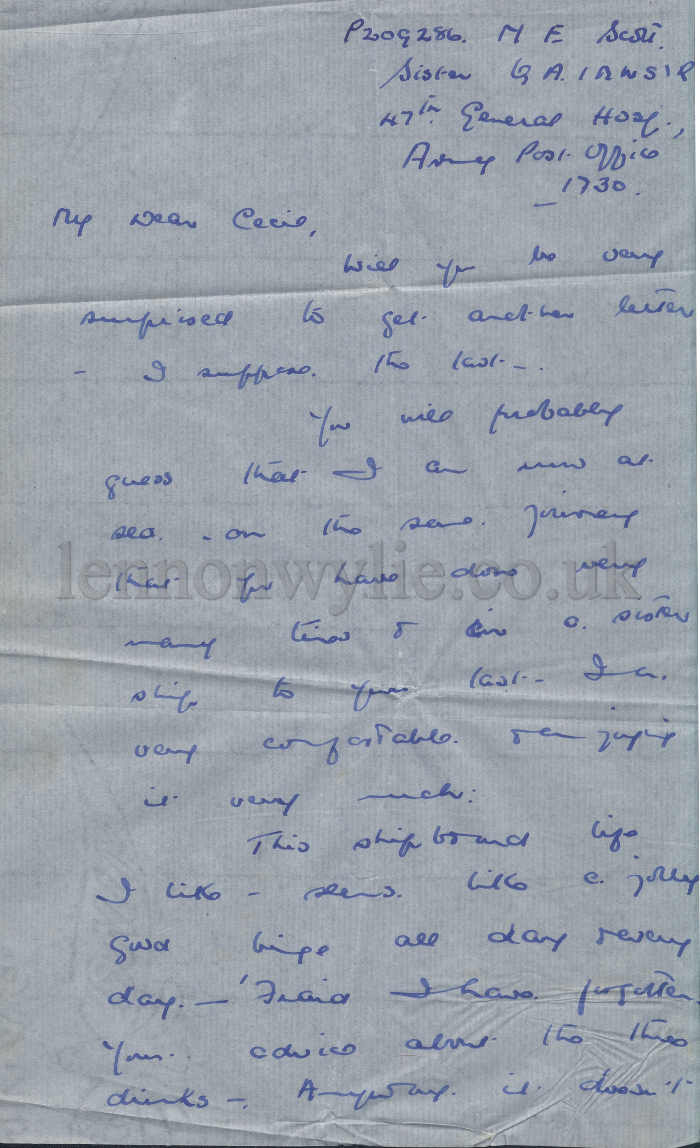 P209286. M E Scott.
Sister Q A. I M N S \ R
47th General Hosp.,
Army Post Office
_ 1730.
My Dear Cecil,
Will you be very
surprised to get another letter
- I suppose. The last -.
You will probably
guess that I am now at
sea. - on the same journey
that you have done very
many times & in a sister
ship to your last - I am
very comfortable. & enjoying
it very much:
This shipboard life
I like - seems. like a jolly
good binge all day & every
day. - 'Fraid I have forgotten
your. advice about the three
drinks -. Anyway. it doesn't
lennonwylie.co.uk